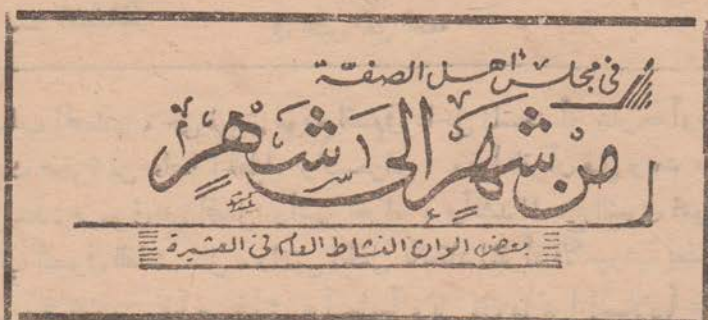 فى مجلس أهل الصفّة
من شَهرٍ إلى شَهرٍ
بعض الوان النشاط العام فى العشيرة